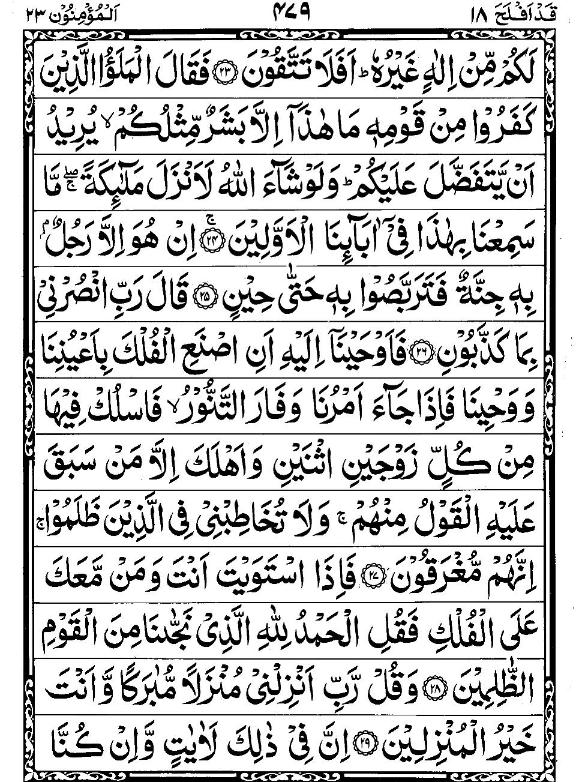 قَدْ اَفْلَحَ ١٨ ۴۷۹ اَلْمُؤْمِنُوْن ٢٣
لَكُمْ مِّنْ اِلٰهٍ غَيْرُهٗ ؕ اَفَلَا تَتَّقُوْنَ ۝۲۳ فَقَالَ الْمَلَؤُا الَّذِيْنَ
كَفَرُوْا مِنْ قَوْمِهٖ مَا هٰذَاۤ اِلَّا بَشَرٌ مِّثْلُكُمْ ۙ يُرِيْدُ
اَنْ يَّتَفَضَّلَ عَلَيْكُمْ ؕ وَلَوْ شَآءَ اللّٰهُ لَاَنْزَلَ مَلٰٓئِكَةً ۖۚ مَّا
سَمِعْنَا بِهٰذَا فِيْۤ اٰبَآئِنَا الْاَوَّلِيْنَ ۚ۝۲۴ اِنْ هُوَ اِلَّا رَجُلٌۢ
بِهٖ جِنَّةٌ فَتَرَبَّصُوْا بِهٖ حَتّٰى حِيْنٍ ۝۲۵ قَالَ رَبِّ انْصُرْنِيْ
بِمَا كَذَّبُوْنِ ۝۲۶ فَاَوْحَيْنَاۤ اِلَيْهِ اَنِ اصْنَعِ الْفُلْكَ بِاَعْيُنِنَا
وَوَحْيِنَا فَاِذَا جَآءَ اَمْرُنَا وَفَارَ التَّنُّوْرُ ۙ فَاسْلُكْ فِيْهَا
مِنْ كُلٍّ زَوْجَيْنِ اثْنَيْنِ وَاَهْلَكَ اِلَّا مَنْ سَبَقَ
عَلَيْهِ الْقَوْلُ مِنْهُمْ ۚ وَلَا تُخَاطِبْنِيْ فِي الَّذِيْنَ ظَلَمُوْا ۚ
اِنَّهُمْ مُّغْرَقُوْنَ ۝۲۷ فَاِذَا اسْتَوَيْتَ اَنْتَ وَمَنْ مَّعَكَ
عَلَى الْفُلْكِ فَقُلِ الْحَمْدُ لِلّٰهِ الَّذِيْ نَجّٰىنَا مِنَ الْقَوْمِ
الظّٰلِمِيْنَ ۝۲۸ وَقُلْ رَّبِّ اَنْزِلْنِيْ مُنْزَلًا مُّبٰرَكًا وَّاَنْتَ
خَيْرُ الْمُنْزِلِيْنَ ۝۲۹ اِنَّ فِيْ ذٰلِكَ لَاٰيٰتٍ وَّاِنْ كُنَّا